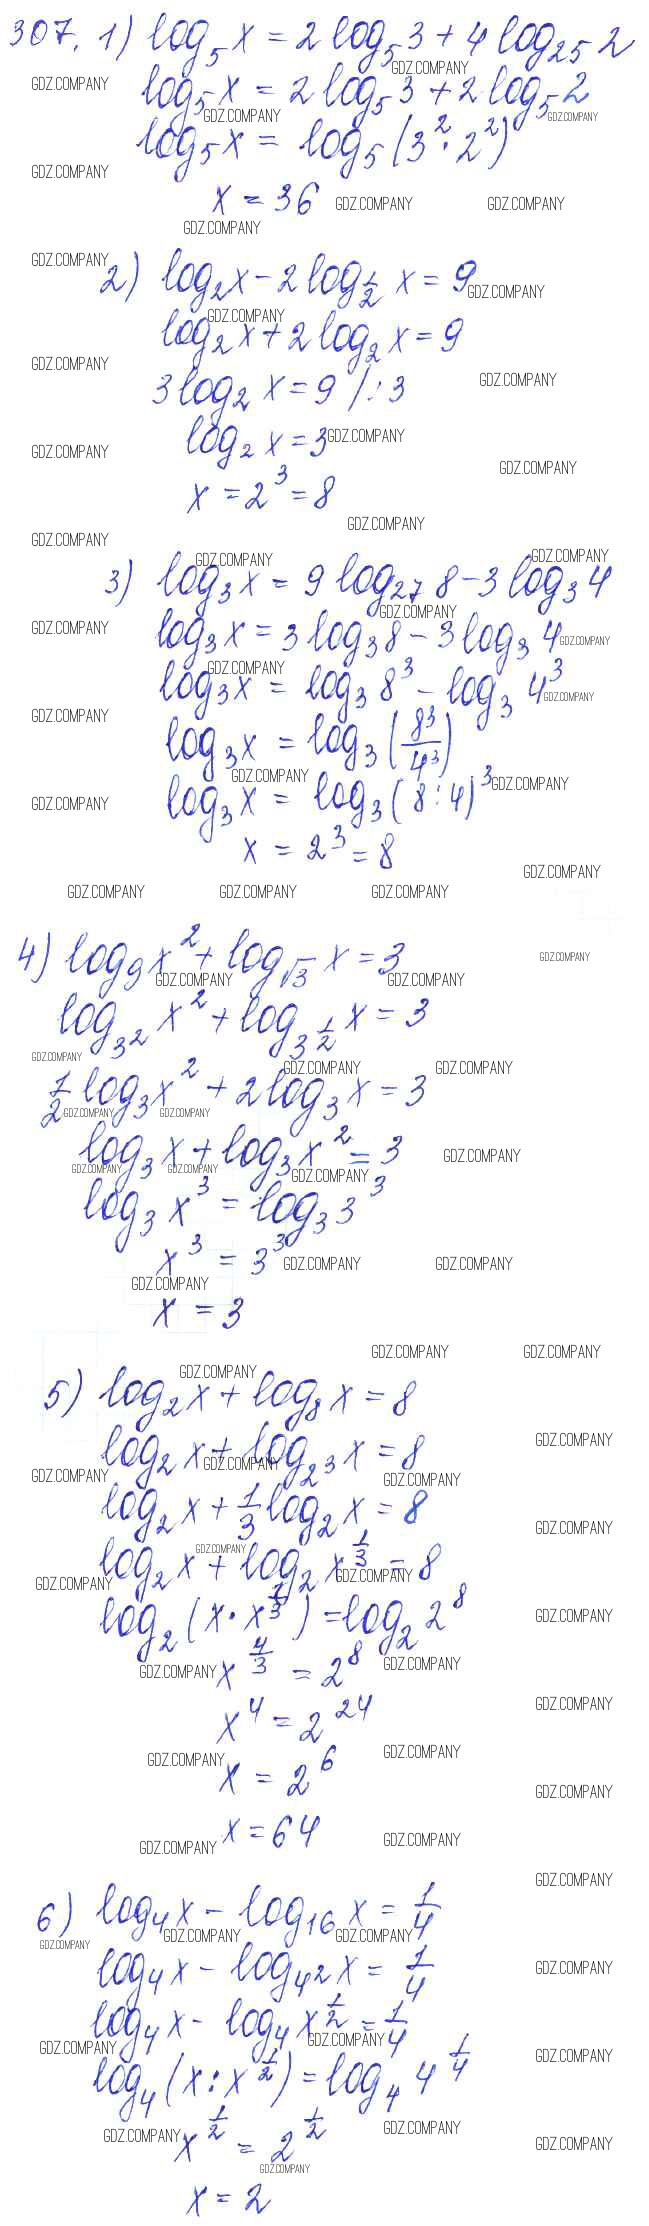 307. 1) log₅ x = 2 log₅ 3 + 4 log₂₅ 2
log₅ x = 2 log₅ 3 + 2 log₅ 2
log₅ x = log₅ (3² · 2²)
x = 36
2) log₂ x − 2 log_{1/2} x = 9
log₂ x + 2 log₂ x = 9
3 log₂ x = 9 /: 3
log₂ x = 3
x = 2³ = 8
3) log₃ x = 9 log₂₇ 8 − 3 log₃ 4
log₃ x = 3 log₃ 8 − 3 log₃ 4
log₃ x = log₃ 8³ − log₃ 4³
log₃ x = log₃ (8³/4³)
log₃ x = log₃ (8 : 4)³
x = 2³ = 8
4) log₉ x² + log_{√3} x = 3
log_{3²} x² + log_{3^{1/2}} x = 3
1/2 log₃ x² + 2 log₃ x = 3
log₃ x + log₃ x² = 3
log₃ x³ = log₃ 3³
x³ = 3³
x = 3
5) log₂ x + log₈ x = 8
log₂ x + log_{2³} x = 8
log₂ x + 1/3 log₂ x = 8
log₂ x + log₂ x^{1/3} = 8
log₂ (x · x^{1/3}) = log₂ 2⁸
x^{4/3} = 2⁸
x⁴ = 2²⁴
x = 2⁶
x = 64
6) log₄ x − log₁₆ x = 1/4
log₄ x − log_{4²} x = 1/4
log₄ x − log₄ x^{1/2} = 1/4
log₄ (x : x^{1/2}) = log₄ 4^{1/4}
x^{1/2} = 2^{1/2}
x = 2
GDZ.COMPANY